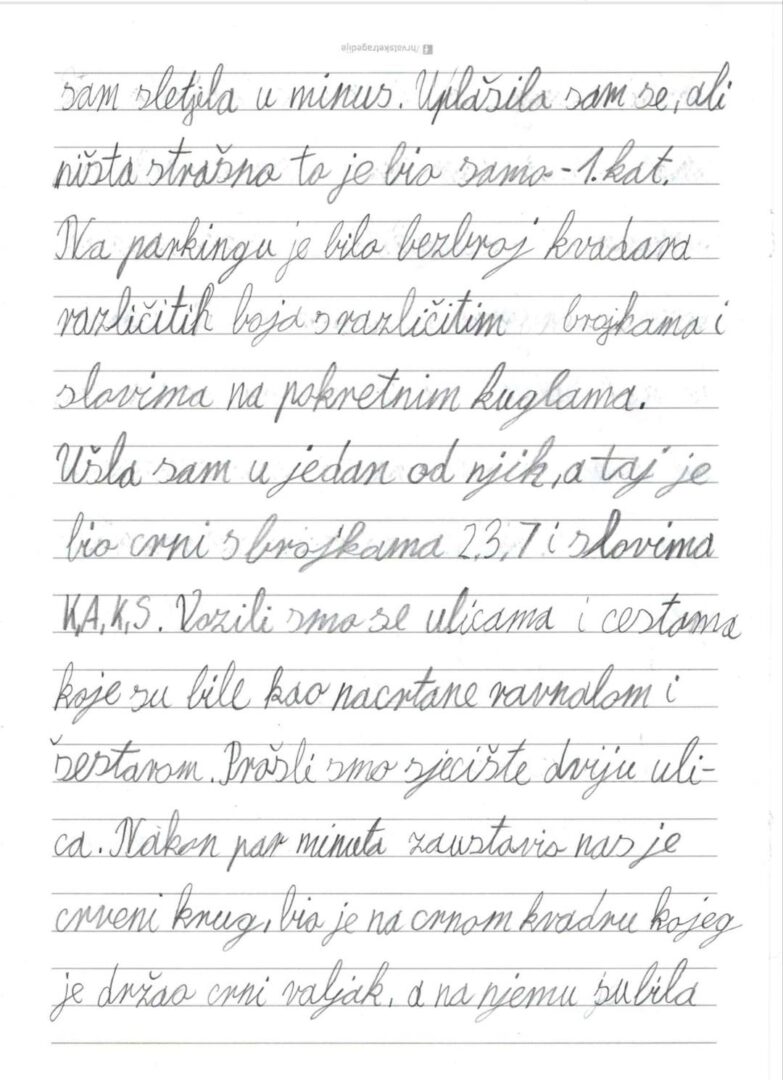 /hrvatsketragedije
sam sletjela u minus. Uplašila sam se, ali
ništa strašno to je bio samo -1. kat.
Na parkingu je bilo bezbroj kvadara
različitih boja s različitim brojkama i
slovima na pokretnim kuglama.
Ušla sam u jedan od njik, a taj je
bio crni s brojkama 2,3,7 i slovima
K,A,K,S. Vozili smo se ulicama i cestama
koje su bile kao nacrtane ravnalom i
šestarom. Prošli smo sjecište dviju uli-
ca. Nakon par minuta zaustavio nas je
crveni krug, bio je na crnom kvadru kojeg
je držao crni valjak, a na njemu su bila